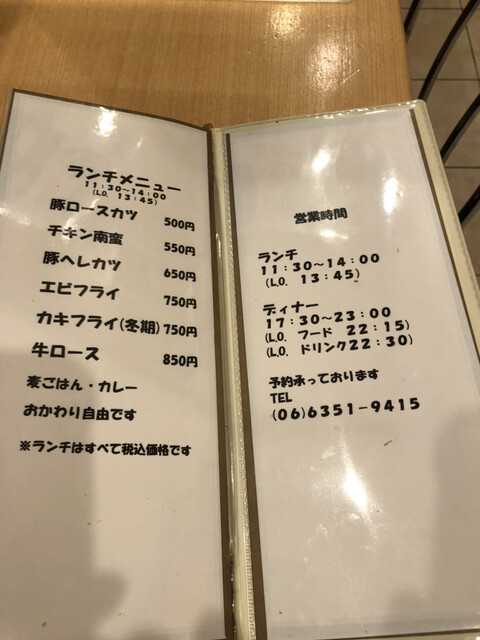 ランチメニュー
11:30~14:00
(L.O. 13:45)
豚ロースカツ 500円
チキン南蛮 550円
豚ヘレカツ 650円
エビフライ 750円
カキフライ(冬期) 750円
牛ロース 850円
麦ごはん・カレー
おかわり自由です
※ランチはすべて税込価格です
営業時間
ランチ
11:30~14:00
(L.O. 13:45)
ディナー
17:30~23:00
(L.O. フード 22:15)
(L.O. ドリンク22:30)
予約承っております
TEL
(06)6351-9415